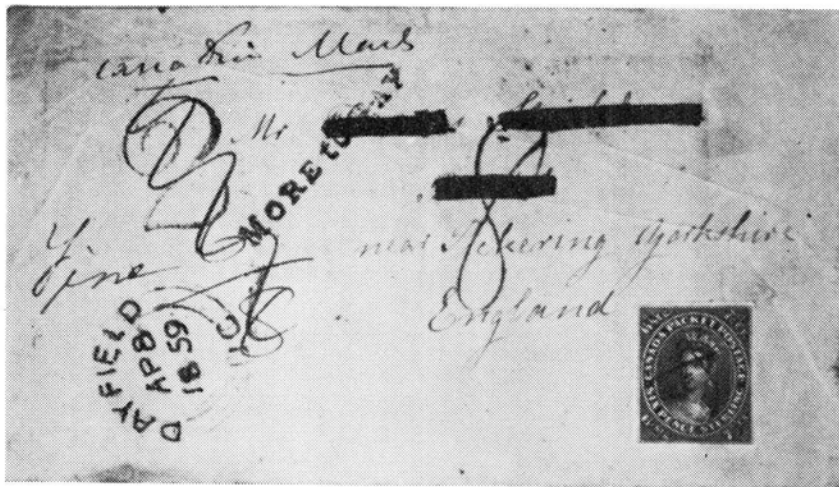 Canadian Mail
Mr
MORE to PAY
8
near Pickering Yorkshire
Fine
England
DAYFIELD
AP 8
1859
CANADA PACKET POSTAGE
SIX PENCE STERLING